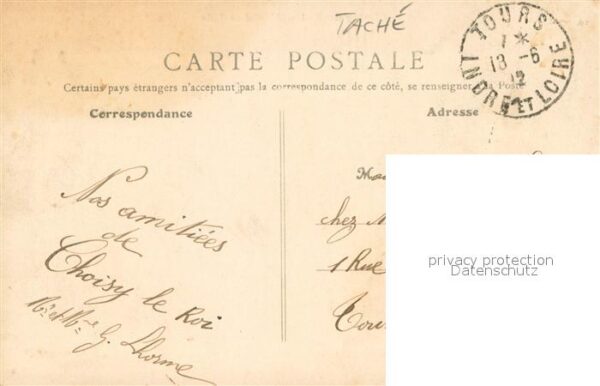 TACHÉ
CARTE POSTALE
Certains pays étrangers n'acceptant pas la correspondance de ce côté, se renseigner à la Poste
TOURS
1 *
13 - 6
12
INDRE ET LOIRE
Correspondance
Adresse
Nos amitiées
de
Choisy le Roi
Mr et Mme G. Lhorme
chez M
1 Rue
Tou
privacy protection
Datenschutz